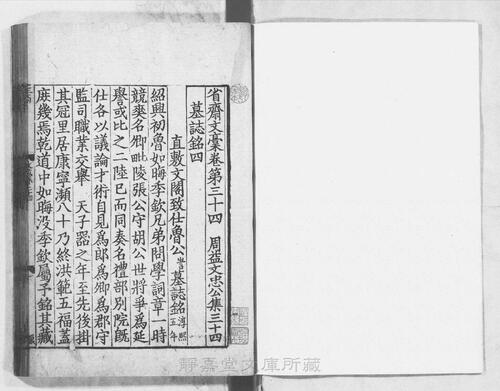 省齋文稾卷第三十四　周益文忠公集三十四
墓誌銘四
直敷文閣致仕魯公墓誌銘淳熙五年
紹興初魯如晦季欽兄弟問學詞章一時
競爽名卿毗陵張公守胡公世將爭爲延
譽或比之二陸已而同奏名禮部別院旣
仕各以議論才術自見爲郎爲卿爲郡守
監司職業交舉　天子器之年至先後掛
其冠里居康寧瀕八十乃終洪範五福蓋
庶幾焉乾道中如晦没季欽屬予銘其藏
靜嘉堂文庫所藏